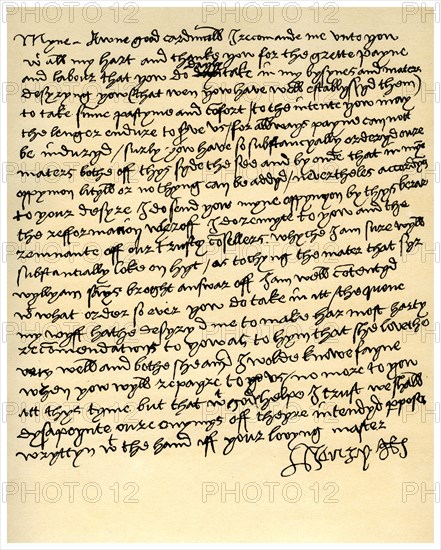 Myne awne good cardinall I recomande me unto you
wt all my hart and thanke you for the grette payne
and labour that you do dayly take in my bysynes and maters
desyryng you (that wen you have well establyssyd them)
to take summe pastyme and comfort to the intente you may
the lenger endure to serve us for allways payne can nott
be induryd surly you have so substancyally orderyd oure
maters bothe off thys syde the see and byonde that in myne
oppynion lityll or no thyng can be addyd nevertheles accordyng
to your desyre I do send you myne oppynyon by thys berar
the refformation wheroff I do remyte to you and the
remnante off our trusty consellers whyche I am sure wyll
substantially loke on hyt as tochyng the mater that syr
wyllyam says broght answar off I am well contentyd
wt what order so ever you do take in itt the quene
my wyff hathe desyryd me to make har most harty
recomendations to you as to hym that she lovethe
very well and bothe she and I wolde knowe fayne
when you wyll repayre to us no more to you
att thys tyme but that wt gods helpe I trust we shall
dysapoynte oure enymys off theyre intendyd purpose
wryttyn wt the hand off your lovyng master
Henry R
PHOTO 12